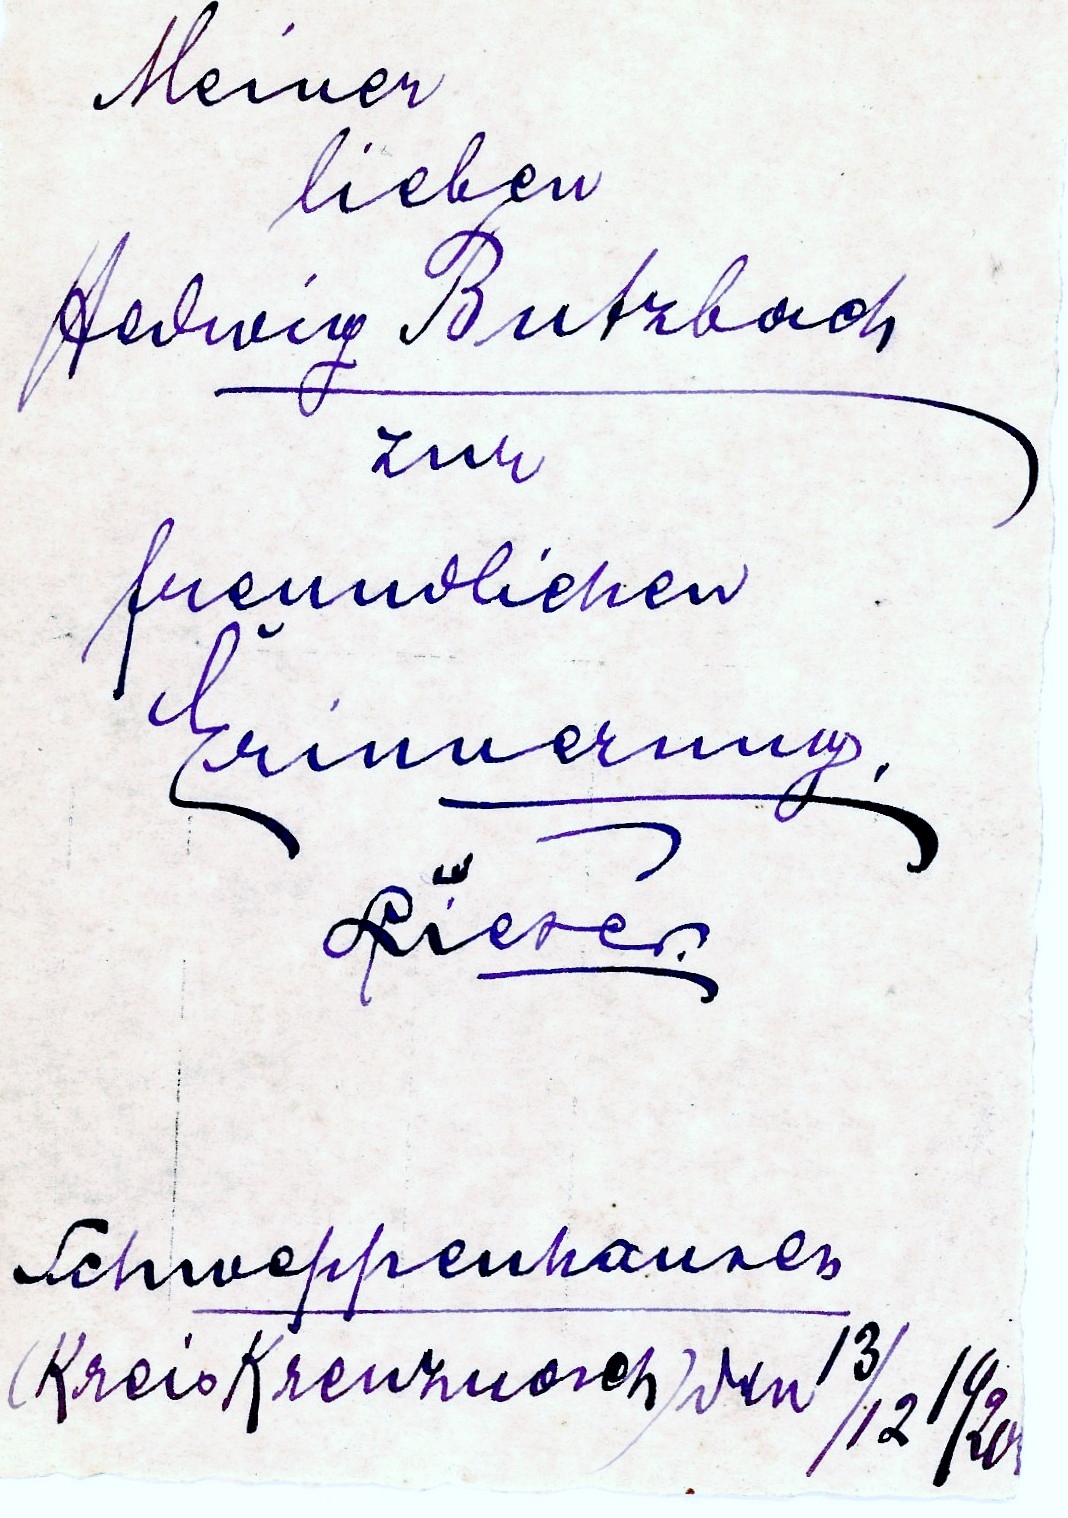 Meiner
lieben
Hedwig Butzbach
zur
freundlichen
Erinnerung.
Schweppenhausen
(Kreis Kreuznach) den 13/12 1920